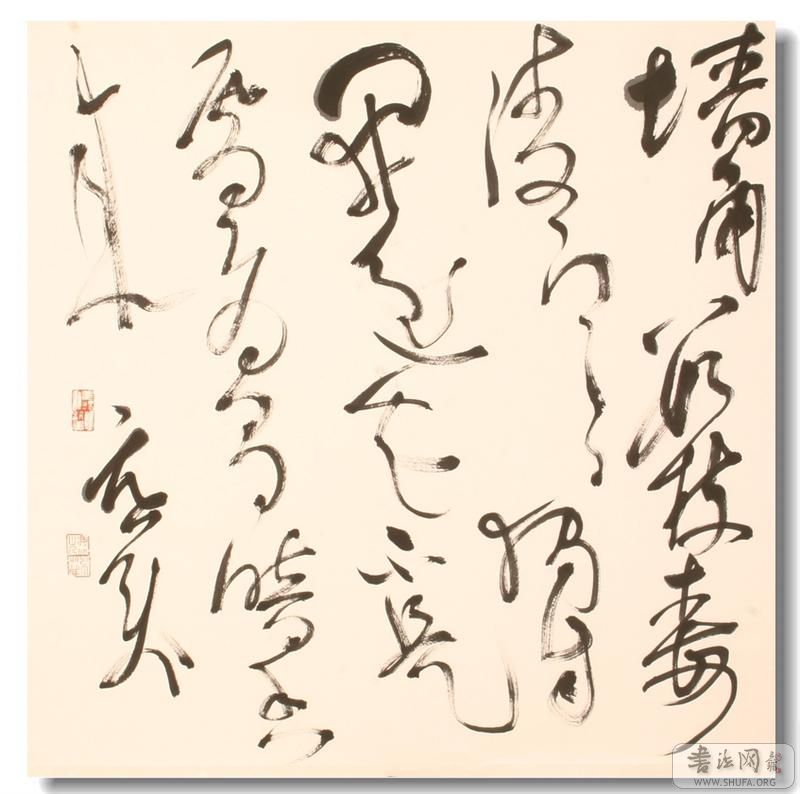 墙角数枝梅
凌寒独自
開遥知不是
雪為有暗香
来
書法网
WWW.SHUFA.ORG